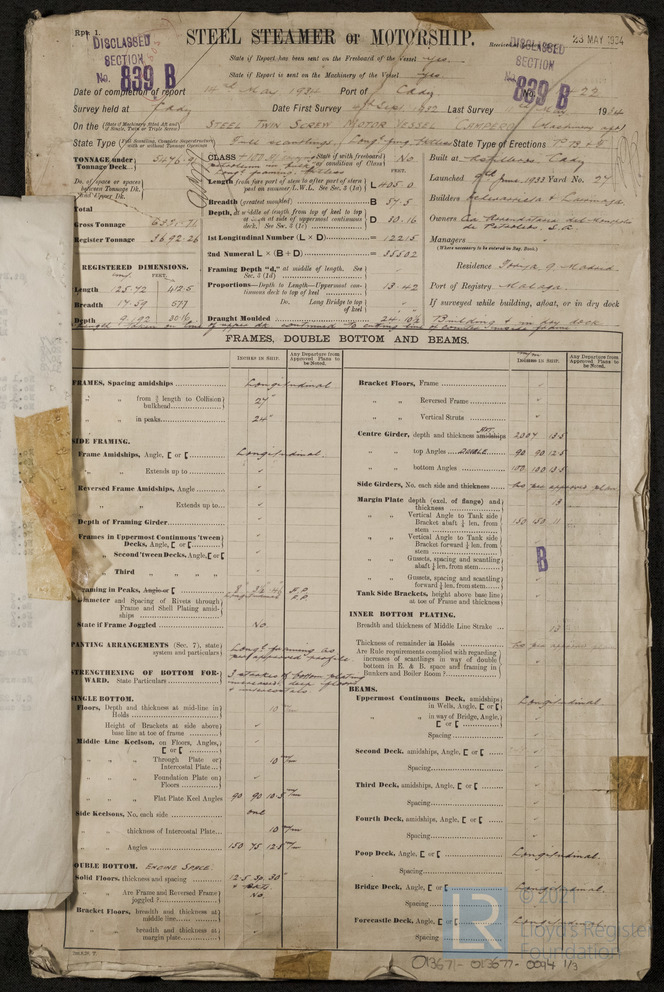 Rpt. 1.
DISCLASSED
SECTION
No. 839 B
STEEL STEAMER or MOTORSHIP.
23 MAY 1934
DISCLASSED
SECTION
839 B
State if Report has been sent on the Freeboard of the Vessel yes.
State if Report is sent on the Machinery of the Vessel yes
Date of completion of report 14th May 1934 Port of Cadiz No. 22
Survey held at Cadiz Date First Survey Sept 1932 Last Survey May 1934
On the STEEL TWIN SCREW MOTOR VESSEL CAMPERO
State Type Full scantlings State Type of Erections
TONNAGE under Tonnage Deck
Do. of space or spaces between Tonnage Dk. and Upper Dk.
Total
Gross Tonnage
Register Tonnage 3692.26
CLASS +100 A1 State if with freeboard as condition of Class No
Length from fore part of stem to after part of stern post on summer L.W.L. See Sec. 3 (1a) L 405.0
Breadth (greatest moulded) B 57.5
Depth, at middle of length from top of keel to top of beam at side of uppermost continuous deck. See Sec. 3 (1c) D 30.16
1st Longitudinal Number (L × D) = 12215
2nd Numeral L × (B + D) = 35502
Framing Depth "d," at middle of length. See Sec. 3 (1d)
Proportions—Depth to Length—Uppermost continuous deck to top of keel 13.42
Do. Long Bridge to top of keel
Draught Moulded 24.10½
Built at Astilleros, Cadiz
Launched June, 1933 Yard No. 27
Builders Echevarrieta & Larrinaga
Owners Cia Arrendataria del Monopolio de Petroleos, S.A.
Managers
(Where necessary to be entered in Reg. Book.)
Residence Madrid
Port of Registry Malaga.
If surveyed while building, afloat, or in dry dock
Building & in dry dock
REGISTERED DIMENSIONS.
FEET.
Length 125.72 412.5
Breadth 17.59 57.7
Depth 9.192 30.16
FRAMES, DOUBLE BOTTOM AND BEAMS.
INCHES IN SHIP. Any Departure from Approved Plans to be Noted.
FRAMES, Spacing amidships Longitudinal
" " from ⅗ length to Collision bulkhead 27"
" " in peaks 24"
SIDE FRAMING.
Frame Amidships, Angle, [ or [ Longitudinal.
" " Extends up to
Reversed Frame Amidships, Angle
" " Extends up to
Depth of Framing Girder
Frames in Uppermost Continuous 'tween Decks, Angle, [ or [
" Second 'tween Decks, Angle, [ or [
" Third " " " "
Framing in Peaks, Angle or [
Diameter and Spacing of Rivets through Frame and Shell Plating amidships
State if Frame Joggled No.
PANTING ARRANGEMENTS (Sec. 7), state system and particulars Longl framing as per approved profile
STRENGTHENING OF BOTTOM FORWARD. State Particulars 3 strakes of bottom plating increased, deep floors & intercostals
SINGLE BOTTOM.
Floors, Depth and thickness at mid-line in Holds 10 m/m
Height of Brackets at side above base line at toe of frame
Middle Line Keelson, on Floors, Angles, [ or [
" " Through Plate or Intercostal Plate 10 m/m
" " Foundation Plate on Floors
" " Flat Plate Keel Angles 90 90 10.5 m/m
Side Keelsons, No. each side one
" " thickness of Intercostal Plate 10 m/m
" " Angles 150 75 12.5 m/m
DOUBLE BOTTOM. ENGINE SPACE.
Solid Floors, thickness and spacing 12.5 30.30"
" " Are Frame and Reversed Frame joggled? No.
Bracket Floors, breadth and thickness at middle line
" " breadth and thickness at margin plate
Bracket Floors, Frame
" " Reversed Frame
" " Vertical Struts
Centre Girder, depth and thickness amidships 2307 13.5
" " top Angles DOUBLE 90 90 12.5
" " bottom Angles 100 13.5
Side Girders, No. each side and thickness two per approved plan
Margin Plate depth (excl. of flange) and thickness 13
" " Vertical Angle to Tank side Bracket abaft ¼ len. from stem 150 150 11
" " Vertical Angle to Tank side Bracket forward ¼ len. from stem
" " Gussets, spacing and scantling abaft ¼ len. from stem
B
" " Gussets, spacing and scantling forward ¼ len. from stem
Tank Side Brackets, height above base line at toe of Frame and thickness
INNER BOTTOM PLATING.
Breadth and thickness of Middle Line Strake 13
Thickness of remainder in Holds
Are Rule requirements complied with regarding increases of scantlings in way of double bottom in E. & B. space and framing in Bunkers and Boiler Room?
BEAMS.
Uppermost Continuous Deck, amidships in Wells, Angle, [ or [ Longitudinal
" " in way of Bridge, Angle, [ or [
Spacing
Second Deck, amidships, Angle, [ or [
Spacing
Third Deck, amidships, Angle, [ or [
Spacing
Fourth Deck, amidships, Angle, [ or [
Spacing
Poop Deck, Angle, [ or [ Longitudinal.
Spacing
Bridge Deck, Angle, [ or [ Longitudinal.
Spacing
Forecastle Deck, Angle, [ or [ Longitudinal
Spacing
LR
© 2021
Lloyd's Register
Foundation
013671-013677-0094 1/3